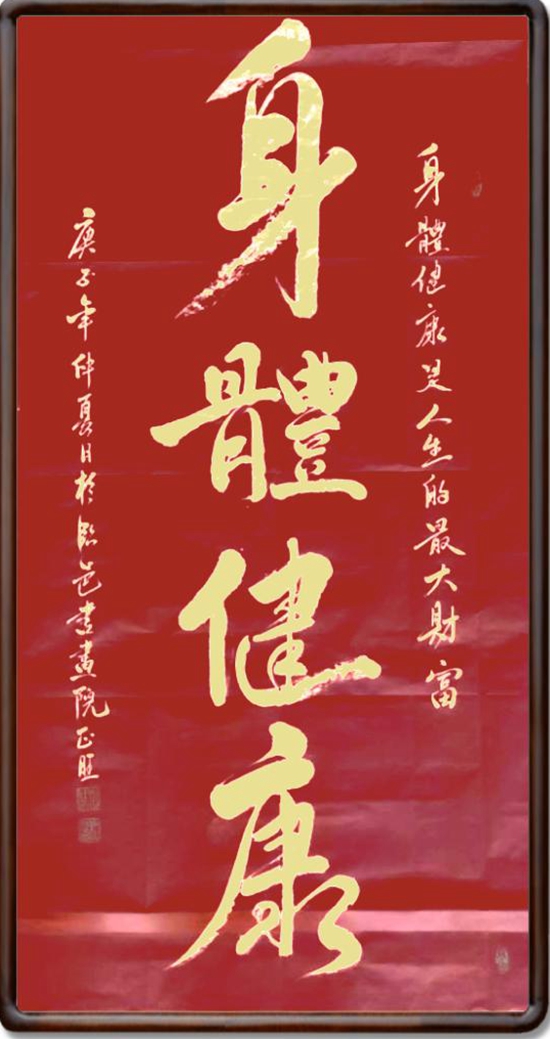 身體健康是人生的最大財富
身體健康
庚子年仲夏日於臨邑書畫院正旺